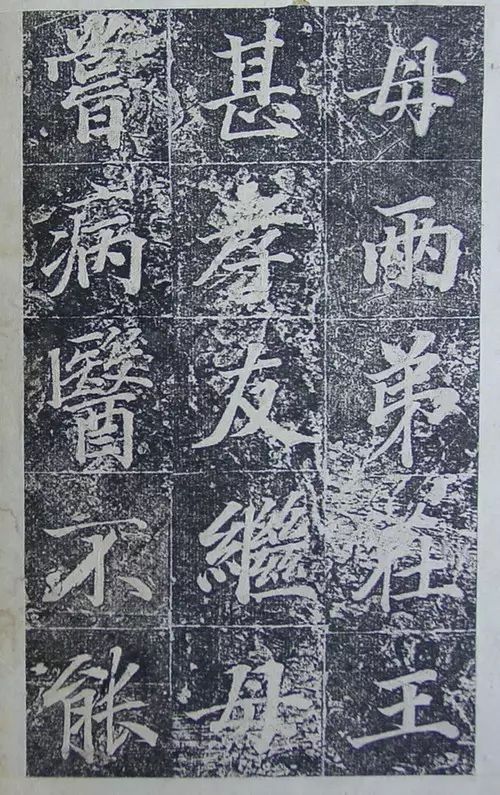 母兩弟莊王
甚孝友繼母
嘗病醫不能